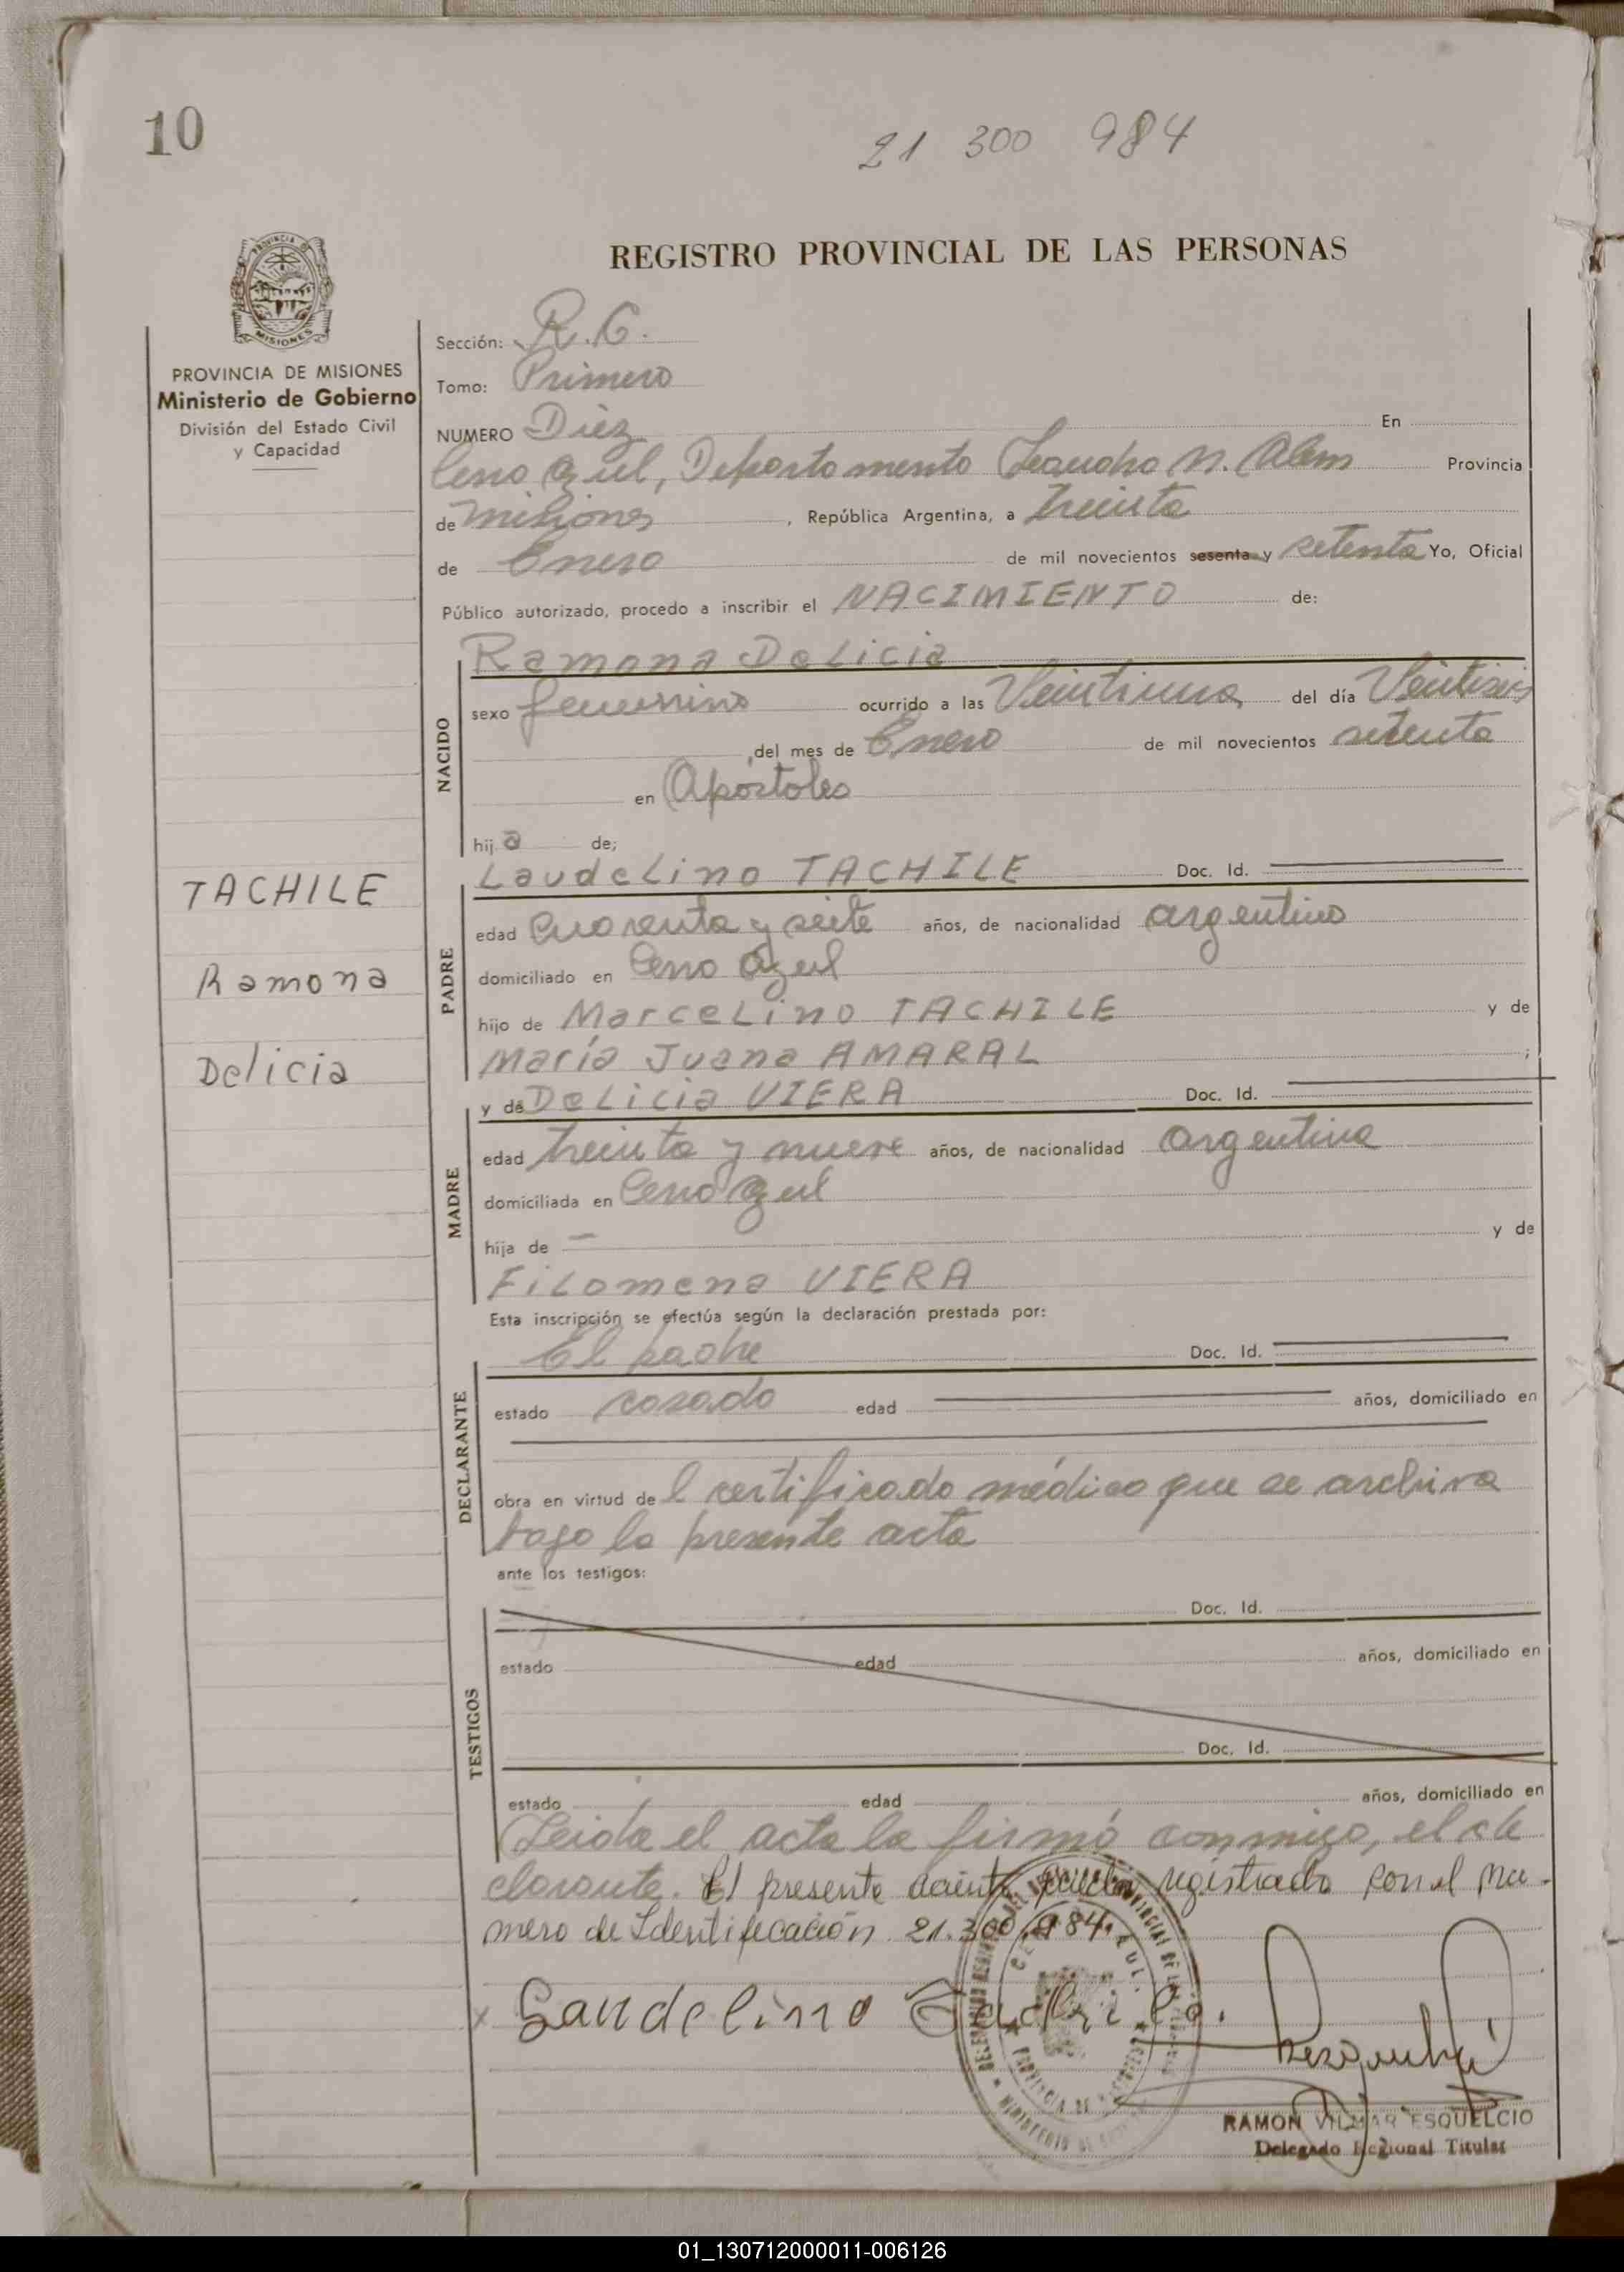 10
21 300 984
REGISTRO PROVINCIAL DE LAS PERSONAS
PROVINCIA DE
MISIONES
PROVINCIA DE MISIONES
Ministerio de Gobierno
División del Estado Civil
y Capacidad
Sección: R.C.
Tomo: Primero
NUMERO Diez En
Cerro Azul, Departamento Leandro N. Alem Provincia
de Misiones, República Argentina, a treinta
de Enero de mil novecientos sesenta y setenta Yo, Oficial
Público autorizado, procedo a inscribir el NACIMIENTO de:
Ramona Delicia
NACIDO
sexo femenino ocurrido a las Veintiuna del día Veintiseis
del mes de Enero de mil novecientos setenta
en Apóstoles
hija de;
TACHILE
Ramona
Delicia
Laudelino TACHILE Doc. Id.
PADRE
edad cuarenta y siete años, de nacionalidad argentino
domiciliado en Cerro Azul
hijo de Marcelino TACHILE y de
María Juana AMARAL ;
y de Delicia VIERA Doc. Id.
MADRE
edad treinta y nueve años, de nacionalidad argentina
domiciliada en Cerro Azul
hija de — y de
Filomena VIERA
Esta inscripción se efectúa según la declaración prestada por:
El padre Doc. Id.
DECLARANTE
estado casado edad años, domiciliado en
obra en virtud del certificado médico que se archiva
bajo la presente acta
ante los testigos:
Doc. Id.
TESTIGOS
estado edad años, domiciliado en
Doc. Id.
estado edad años, domiciliado en
Leida el acta la firmó conmigo, el de
clarante. El presente asiento queda registrado con el nu-
mero de Identificación 21.300.984.
x Laudelino Tachile.
RAMON VILMAR ESQUELCIO
Delegado Regional Titular
01_130712000011-006126